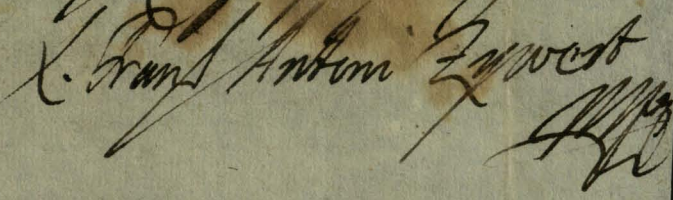 X. Franz Antoni Zywert